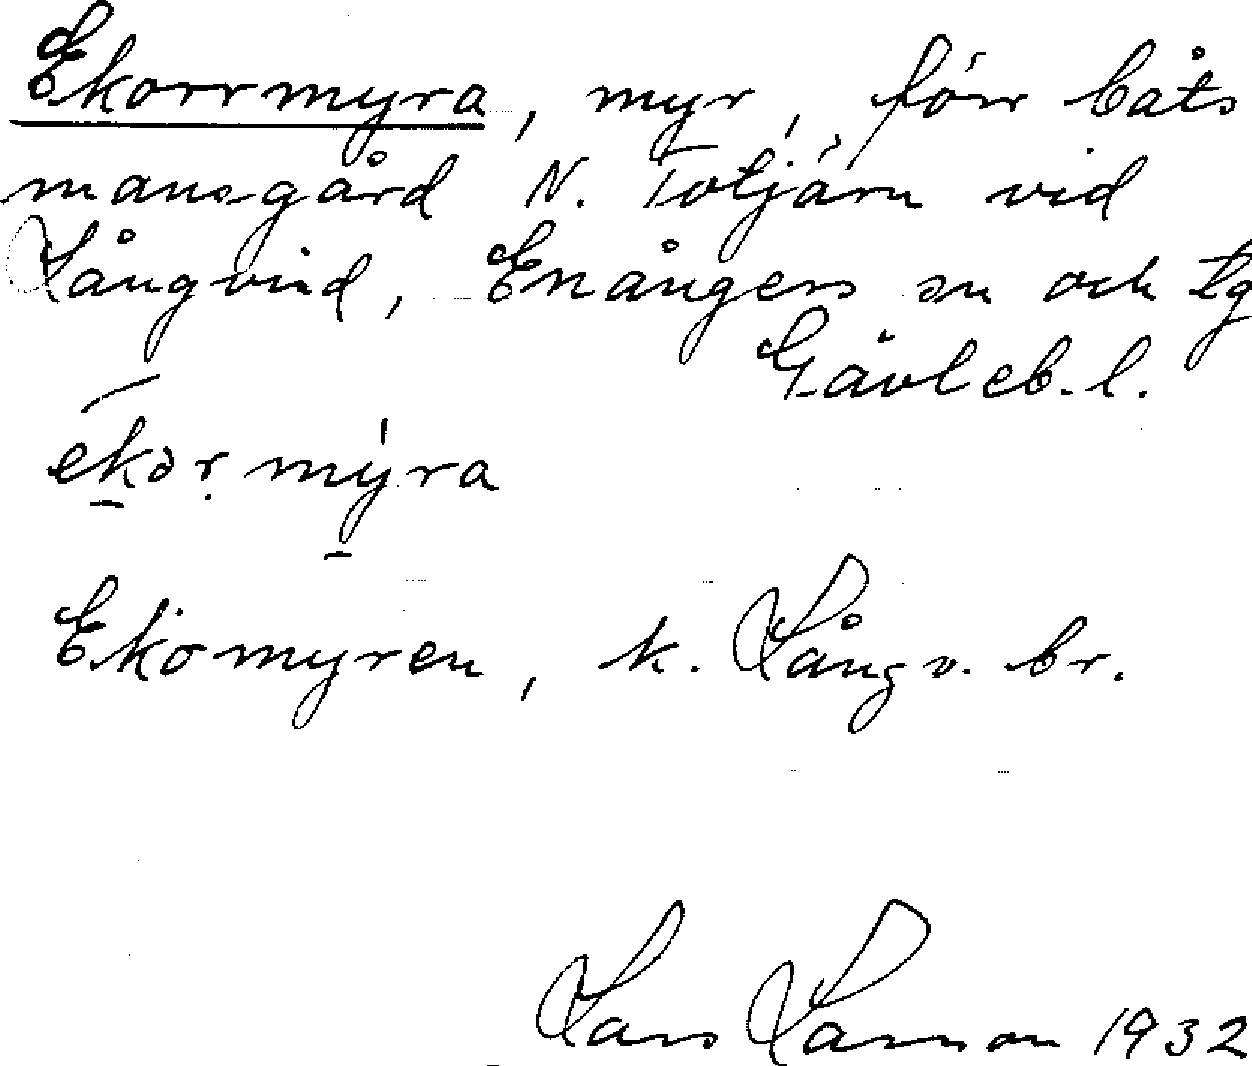 Ekorrmyra, myr, förr båts
mansgård N. Totjärn vid
Långvind, Enångers sn och tg
Gävleb. l.
ekormyra
Ekomyren, k. Långv. br.
Lars Larsson 1932